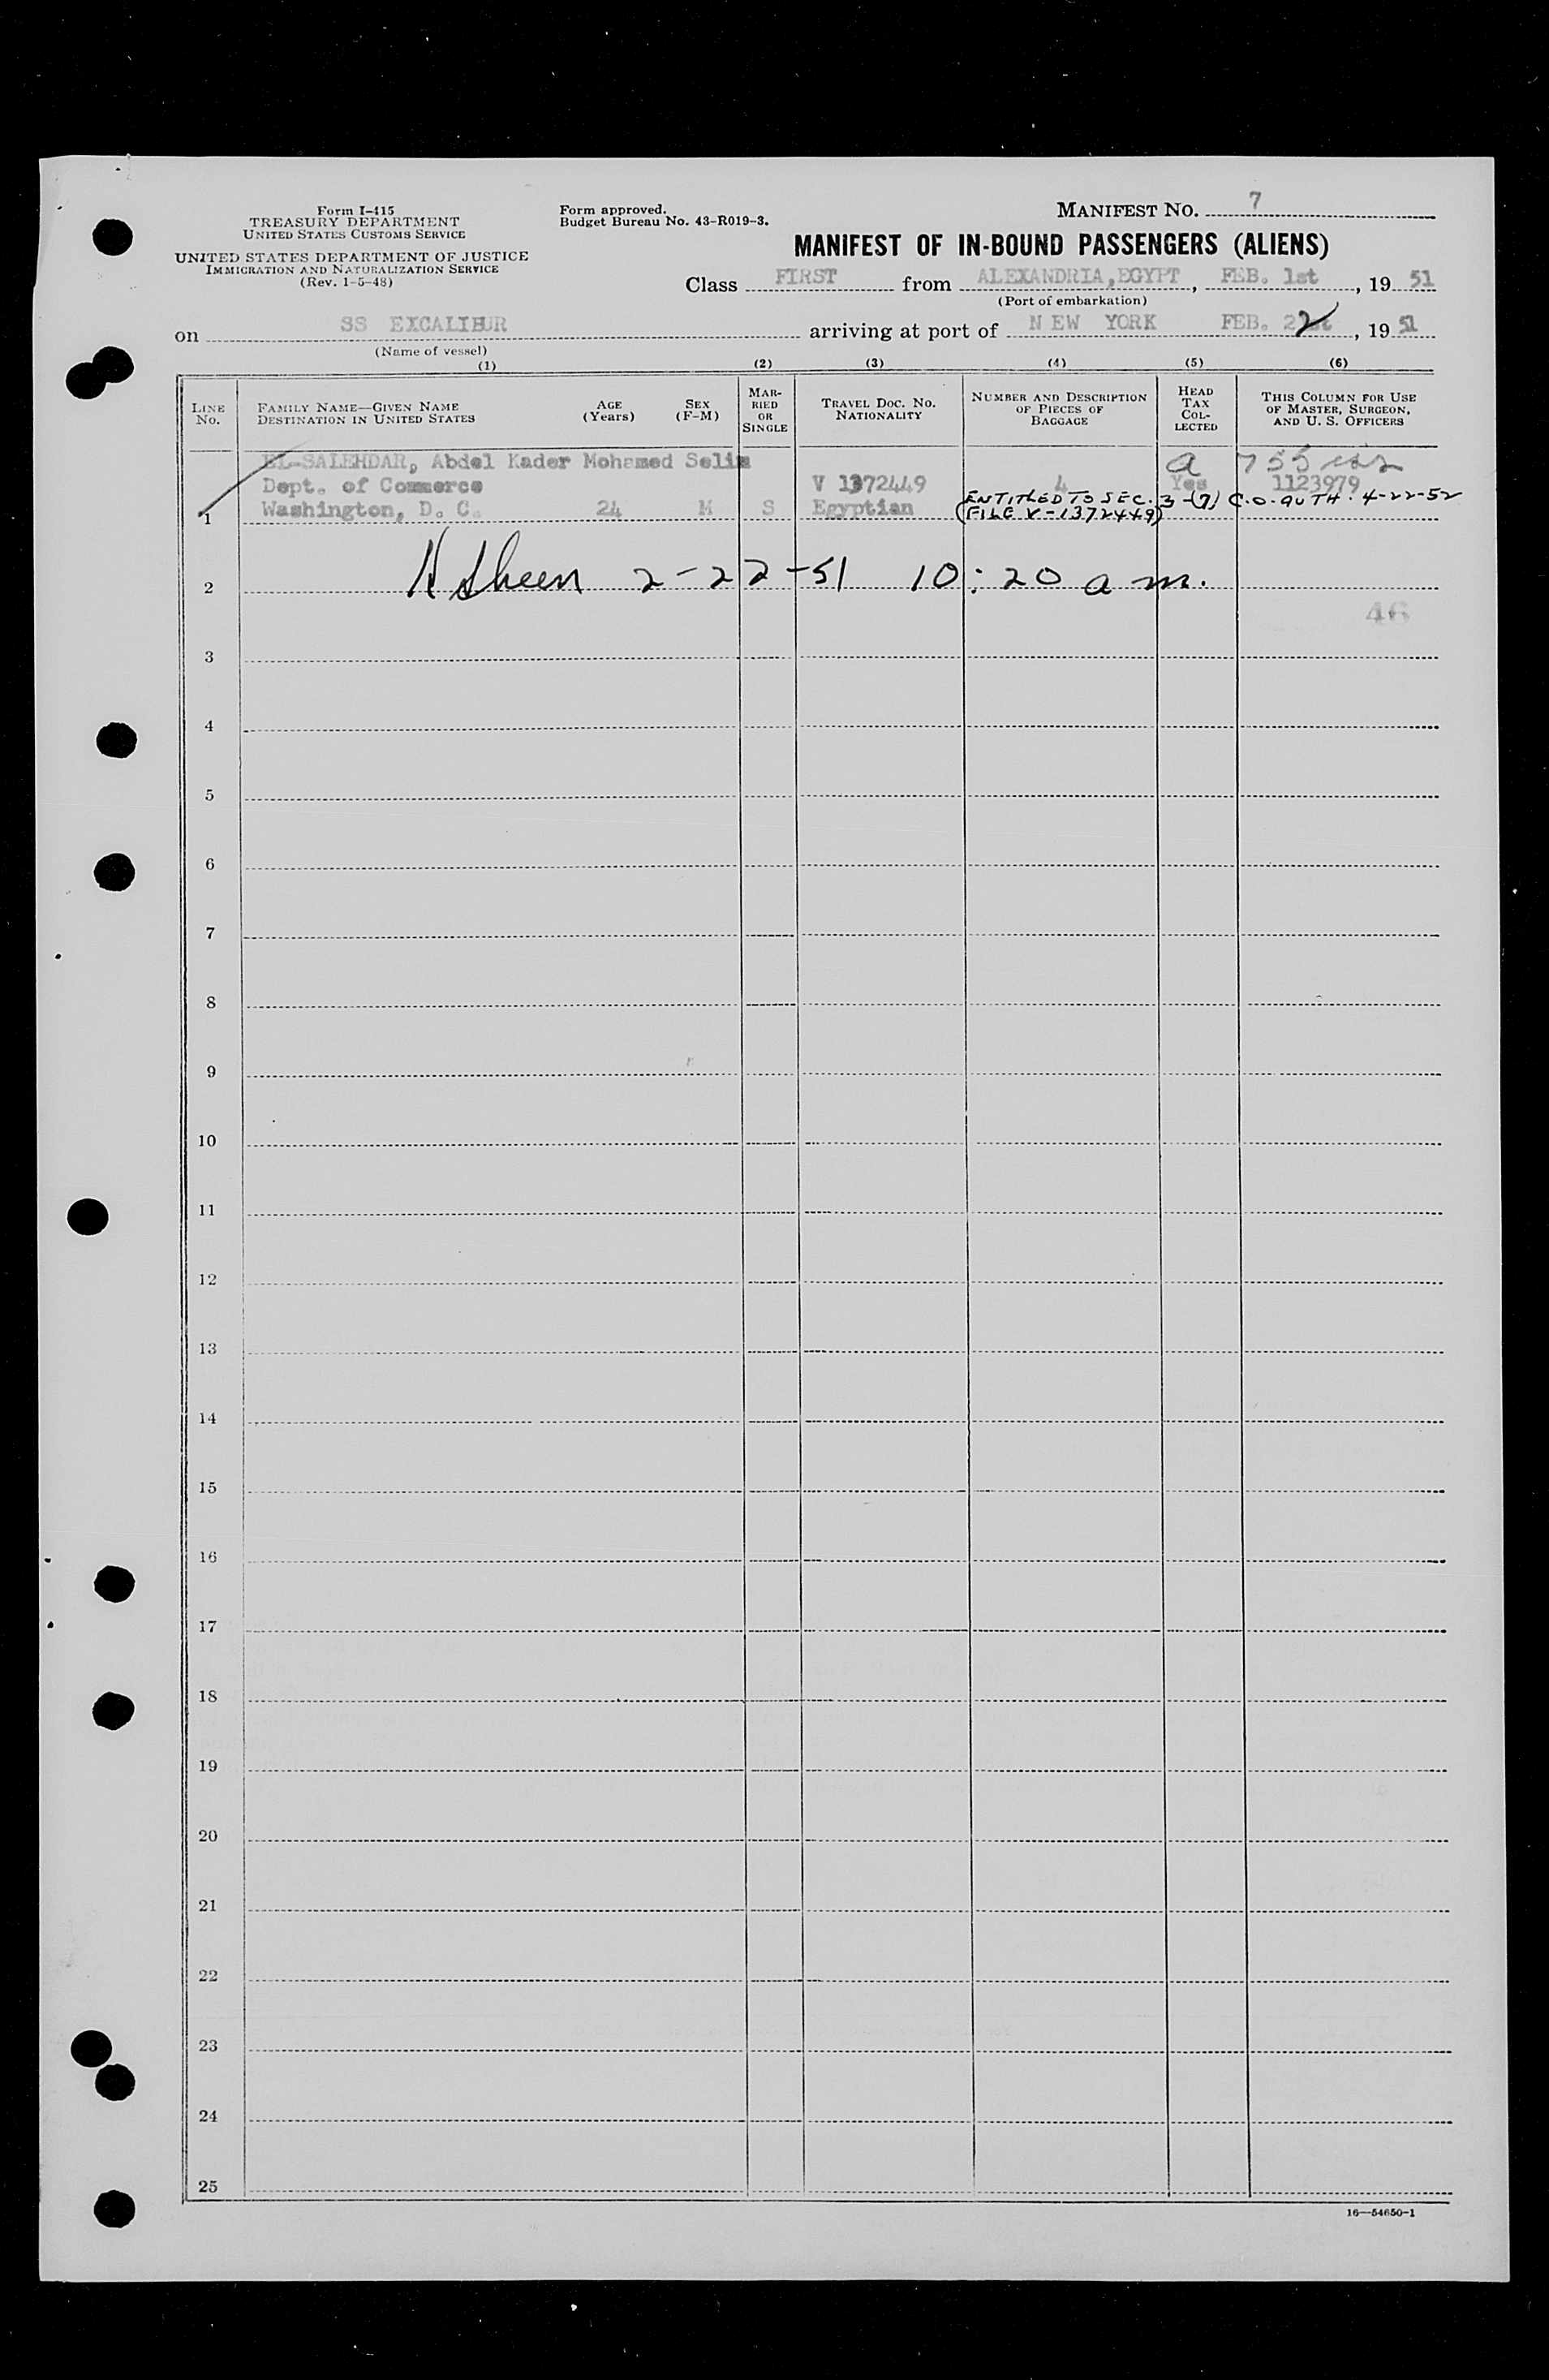 Form I-415
TREASURY DEPARTMENT
UNITED STATES CUSTOMS SERVICE
UNITED STATES DEPARTMENT OF JUSTICE
IMMIGRATION AND NATURALIZATION SERVICE
(Rev. 1-5-48)
Form approved.
Budget Bureau No. 43-R019-3.
MANIFEST NO. 7
MANIFEST OF IN-BOUND PASSENGERS (ALIENS)
Class FIRST from ALEXANDRIA, EGYPT, FEB. 1st, 19 51
(Port of embarkation)
on SS EXCALIBUR arriving at port of NEW YORK FEB. 22, 19 51
(Name of vessel)
(1) (2) (3) (4) (5) (6)
LINE No.
FAMILY NAME—GIVEN NAME
DESTINATION IN UNITED STATES
AGE (Years)
SEX (F-M)
MARRIED OR SINGLE
TRAVEL DOC. NO.
NATIONALITY
NUMBER AND DESCRIPTION OF PIECES OF BAGGAGE
HEAD TAX COLLECTED
THIS COLUMN FOR USE OF MASTER, SURGEON, AND U. S. OFFICERS
EL-SALEHDAR, Abdel Kader Mohamed Selim a 755
Dept. of Commerce V 1372449 4 Yes 1123979
1 Washington, D. C. 24 M S Egyptian
ENTITLED TO SEC. 3-(7) C.O. AUTH. 4-22-52
(FILE V-1372449)
2 2-22-51 10:20 a m.
46
3
4
5
6
7
8
9
10
11
12
13
14
15
16
17
18
19
20
21
22
23
24
25
16—54650-1